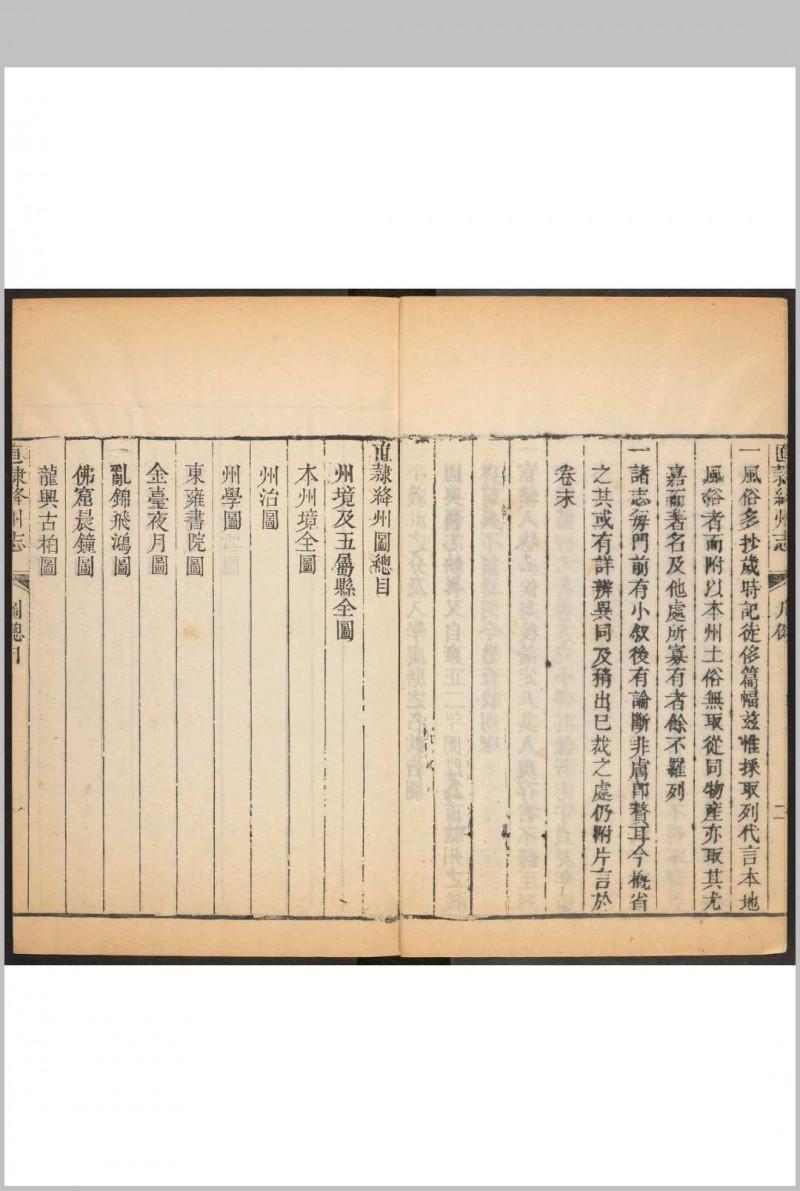 直隸絳州志
凡例
二
一風俗多抄歲時記徒侈篇幅兹惟採取列代言本地
風俗者而附以本州土俗無取從同物産亦取其尤
嘉而著名及他處所寡有者餘不羅列
一諸志每門前有小叙後有論斷非膚卽贅耳今槪省
之其或有詳辨異同及稍出已裁之處仍附片言於
卷末
直隸絳州圖總目
州境及五屬縣全圖
本州境全圖
州治圖
州學圖
東雍書院圖
金臺夜月圖
亂錦飛鴻圖
佛窟晨鐘圖
龍興古柏圖
直隸絳州志
圖總目
一